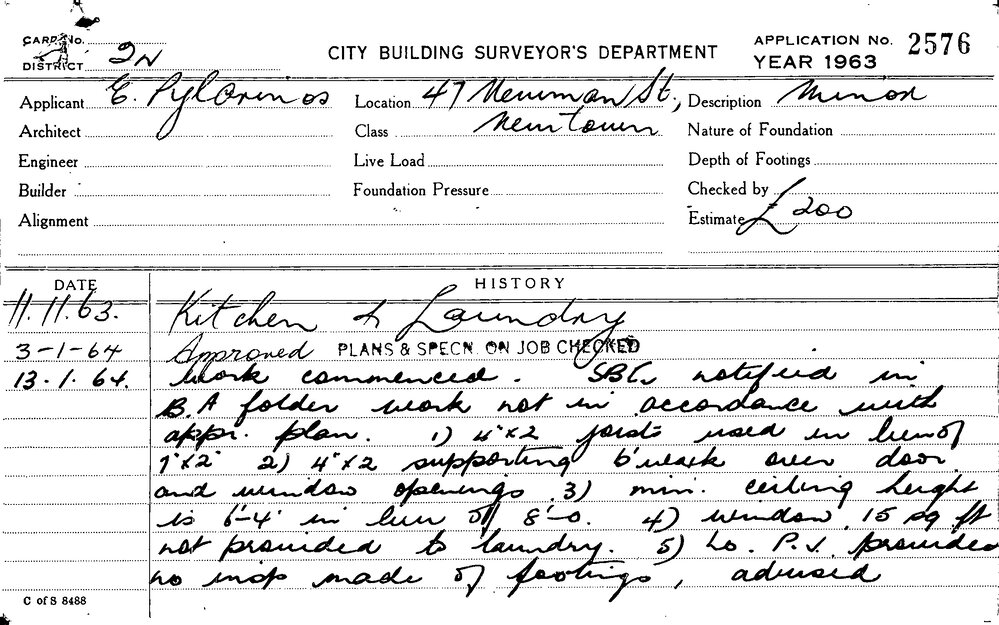 CARD No.
DISTRICT 2N
CITY BUILDING SURVEYOR'S DEPARTMENT
APPLICATION No. 2576
YEAR 1963
Applicant E. Pylarinos
Location 47 Merriman St.,
Description Minor
Architect
Class Newtown
Nature of Foundation
Engineer
Live Load
Depth of Footings
Builder
Foundation Pressure
Checked by
Alignment
Estimate £200
DATE HISTORY
11.11.63. Kitchen & Laundry
3-1-64 Approved PLANS & SPECN. ON JOB CHECKED
13.1.64. Work commenced. notified in
B.A folder work not in accordance with
appr. plan. 1) 4"x2 joists used in lieu of
7"x2" 2) 4"x2 supporting b'work over door
and window openings. 3) min. ceiling height
is 6'-4" in lieu of 8'-0. 4) window 15 sq ft
not provided to laundry. 5) provided
no insp made of footings, advised
C of S 8488